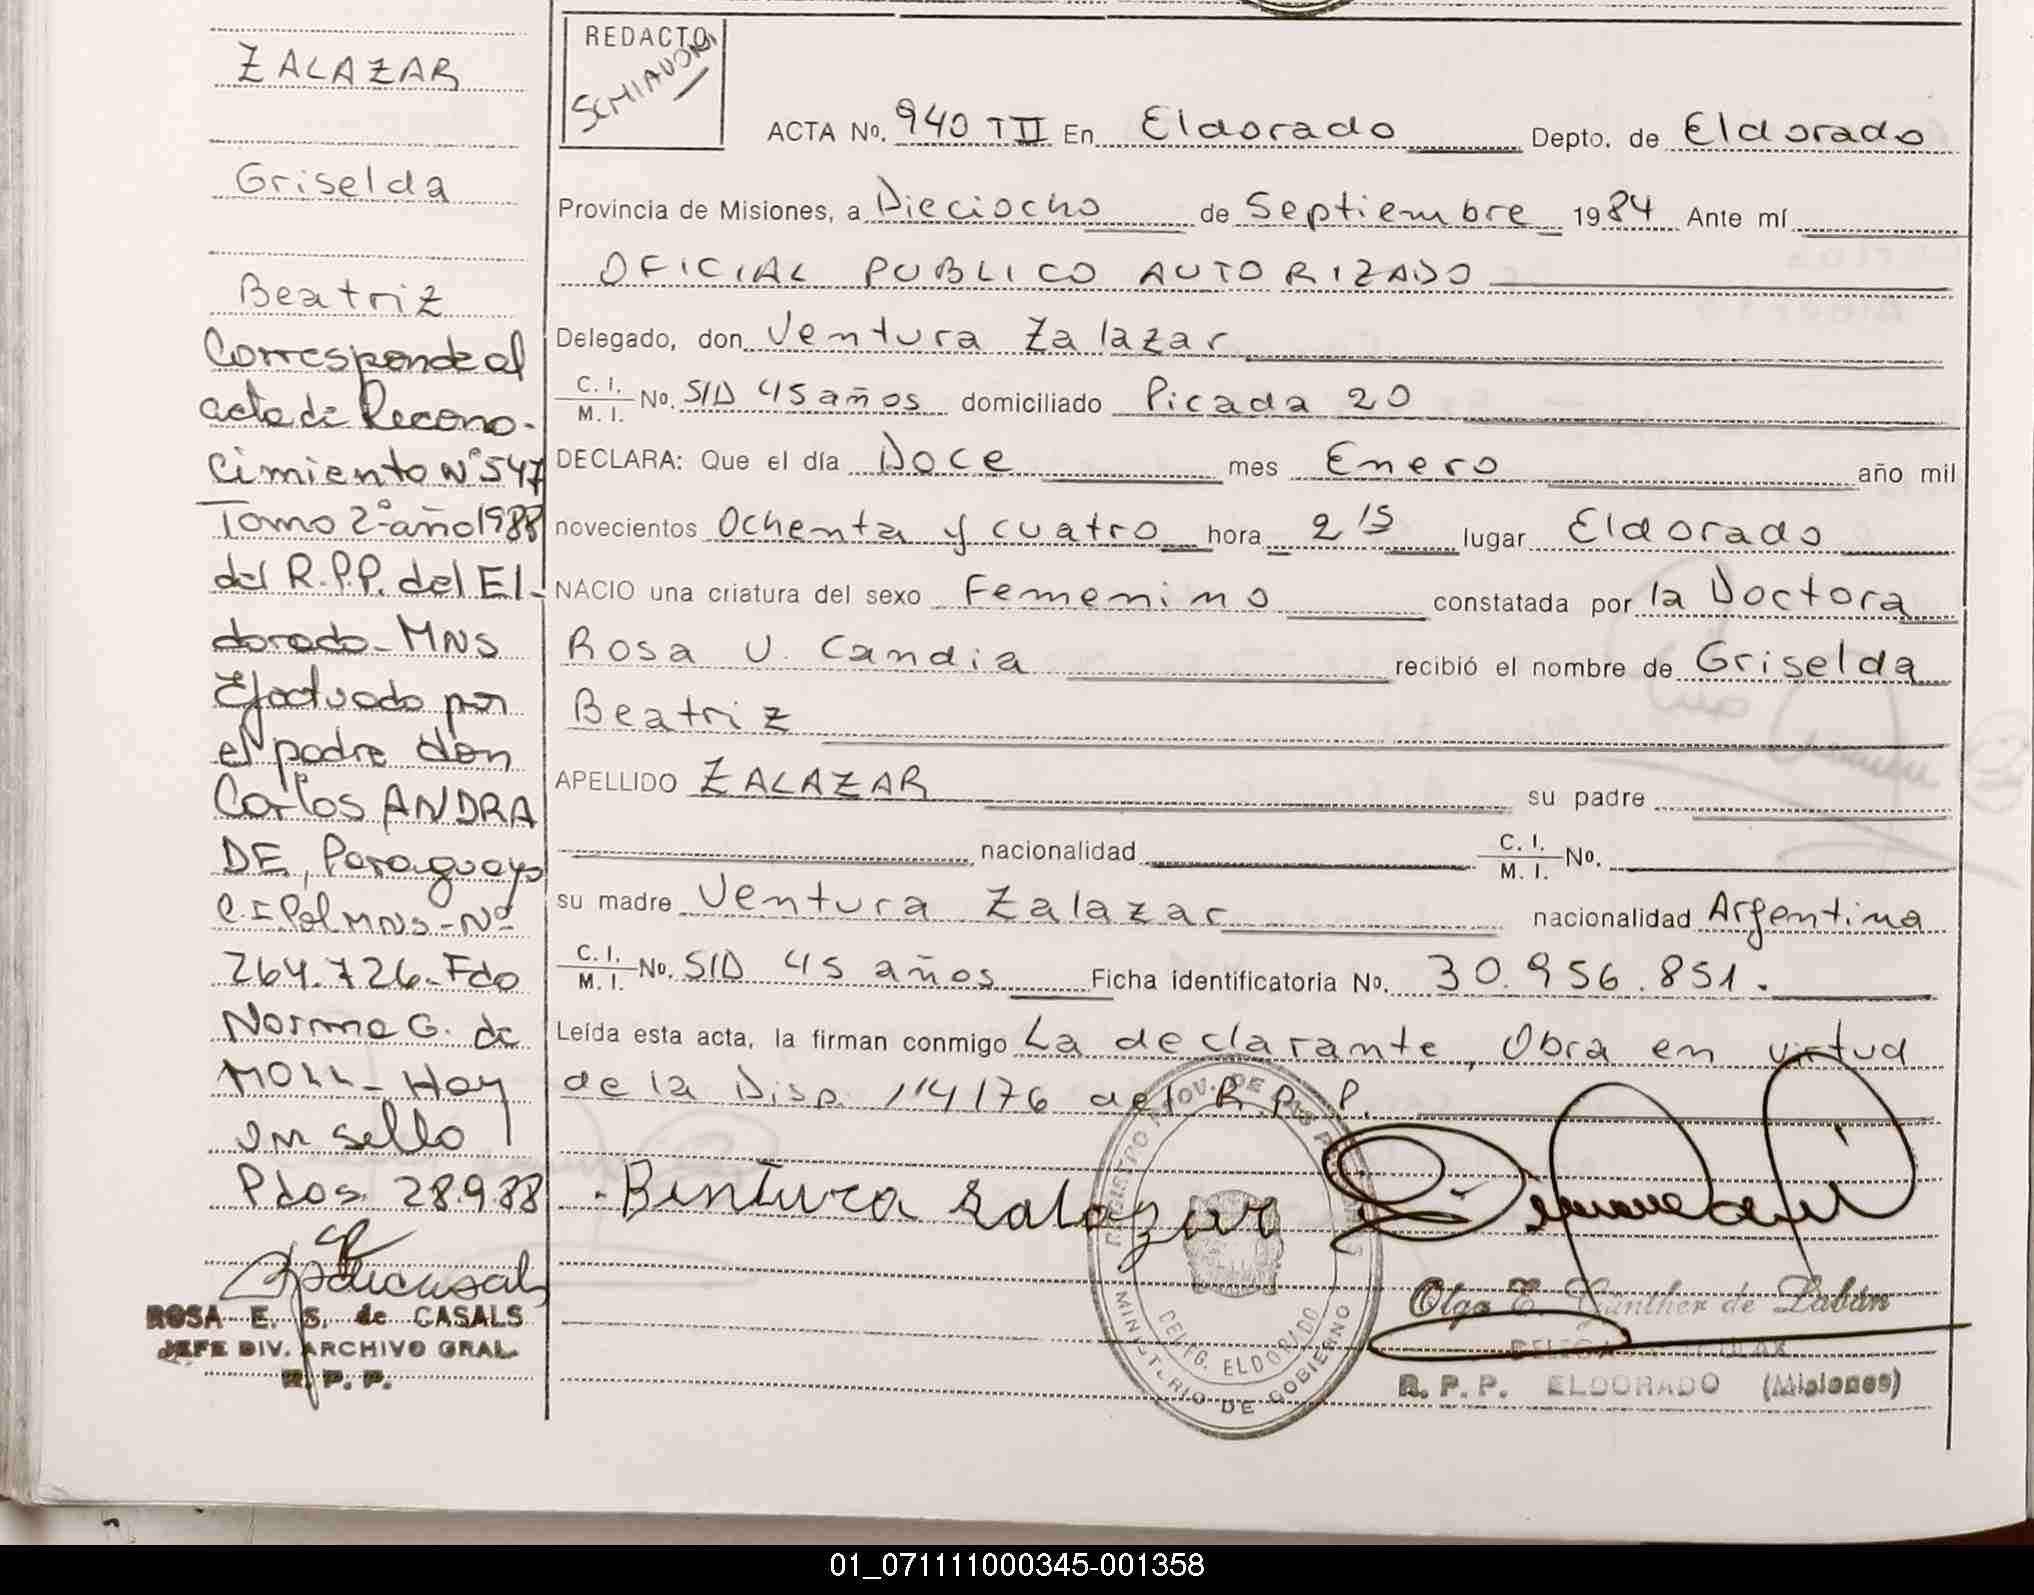 ZALAZAR
Griselda
Beatriz
Corresponde al
acta de Recono-
cimiento Nº 547
Tomo 2º año 1988
del R.P.P. del El-
dorado - MNS
Efectuado por
el padre don
Carlos ANDRA
DE, Paraguayo
C.I Pol MNS - Nº
264.726 - Fdo
Norma G. de
MOLL - Hay
un sello
Pdos. 28.9.88
ROSA E. S. de CASALS
JEFE DIV. ARCHIVO GRAL.
R. P. P.
REDACTO
SCHIAVONI
ACTA No. 940 TII En Eldorado Depto. de Eldorado
Provincia de Misiones, a Dieciocho de Septiembre 1984 Ante mí
OFICIAL PUBLICO AUTORIZADO
Delegado, don Ventura Zalazar
C. I. / M. I. No. S/D 45 años domiciliado Picada 20
DECLARA: Que el día Doce mes Enero año mil
novecientos Ochenta y cuatro hora 2 15 lugar Eldorado
NACIO una criatura del sexo Femenino constatada por la Doctora
Rosa U. Candia recibió el nombre de Griselda
Beatriz
APELLIDO ZALAZAR su padre
nacionalidad C. I. / M. I. No.
su madre Ventura Zalazar nacionalidad Argentina
C. I. / M. I. No. S/D 45 años Ficha identificatoria No. 30.956.851.
Leída esta acta, la firman conmigo La declarante, Obra en virtud
de la Disp. 114/76 del R.P.P.
Bentura Salazar
REGISTRO PROV. DE LAS PERSONAS
DELEG. ELDORADO
MINISTERIO DE GOBIERNO
Olga E. Günther de Labán
DELEGADA TITULAR
R. P. P. ELDORADO (Misiones)
01_071111000345-001358